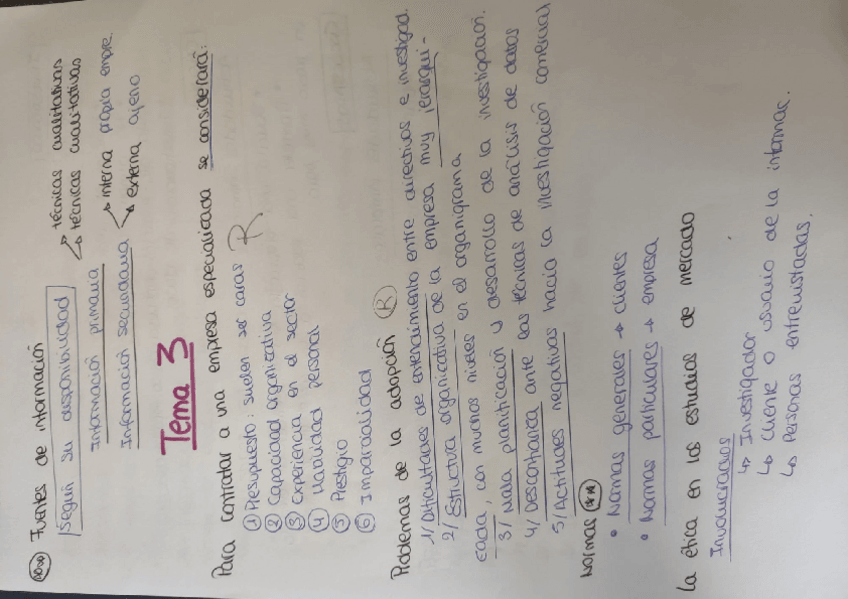 Fuentes de información
Según su disponibilidad
Información primaria → técnicas cualitativas
→ técnicas cuantitativas
Información secundaria → interna propia empre.
→ externa ajeno
Tema 3
Para contratar a una empresa especializada se considerará:
① Presupuesto: suelen ser caras R
② Capacidad organizativa
③ Experiencia en el sector
④ Habilidad personal
⑤ Prestigio
⑥ Imparcialidad
Problemas de la adopción Ⓡ
1/ Dificultades de entendimiento entre directivos e investigad.
2/ Estructura organizativa de la empresa muy jerarqui-
cada, con muchos niveles en el organigrama
3/ Mala planificación y desarrollo de la investigación.
4/ Desconfianza ante las técnicas de análisis de datos
5/ Actitudes negativas hacia la investigación comercial
Normas (**)
• Normas generales → clientes
• Normas particulares → empresa
La ética en los estudios de mercado
Involucrados
↳ Investigador
↳ Cliente o usuario de la informac.
↳ Personas entrevistadas.